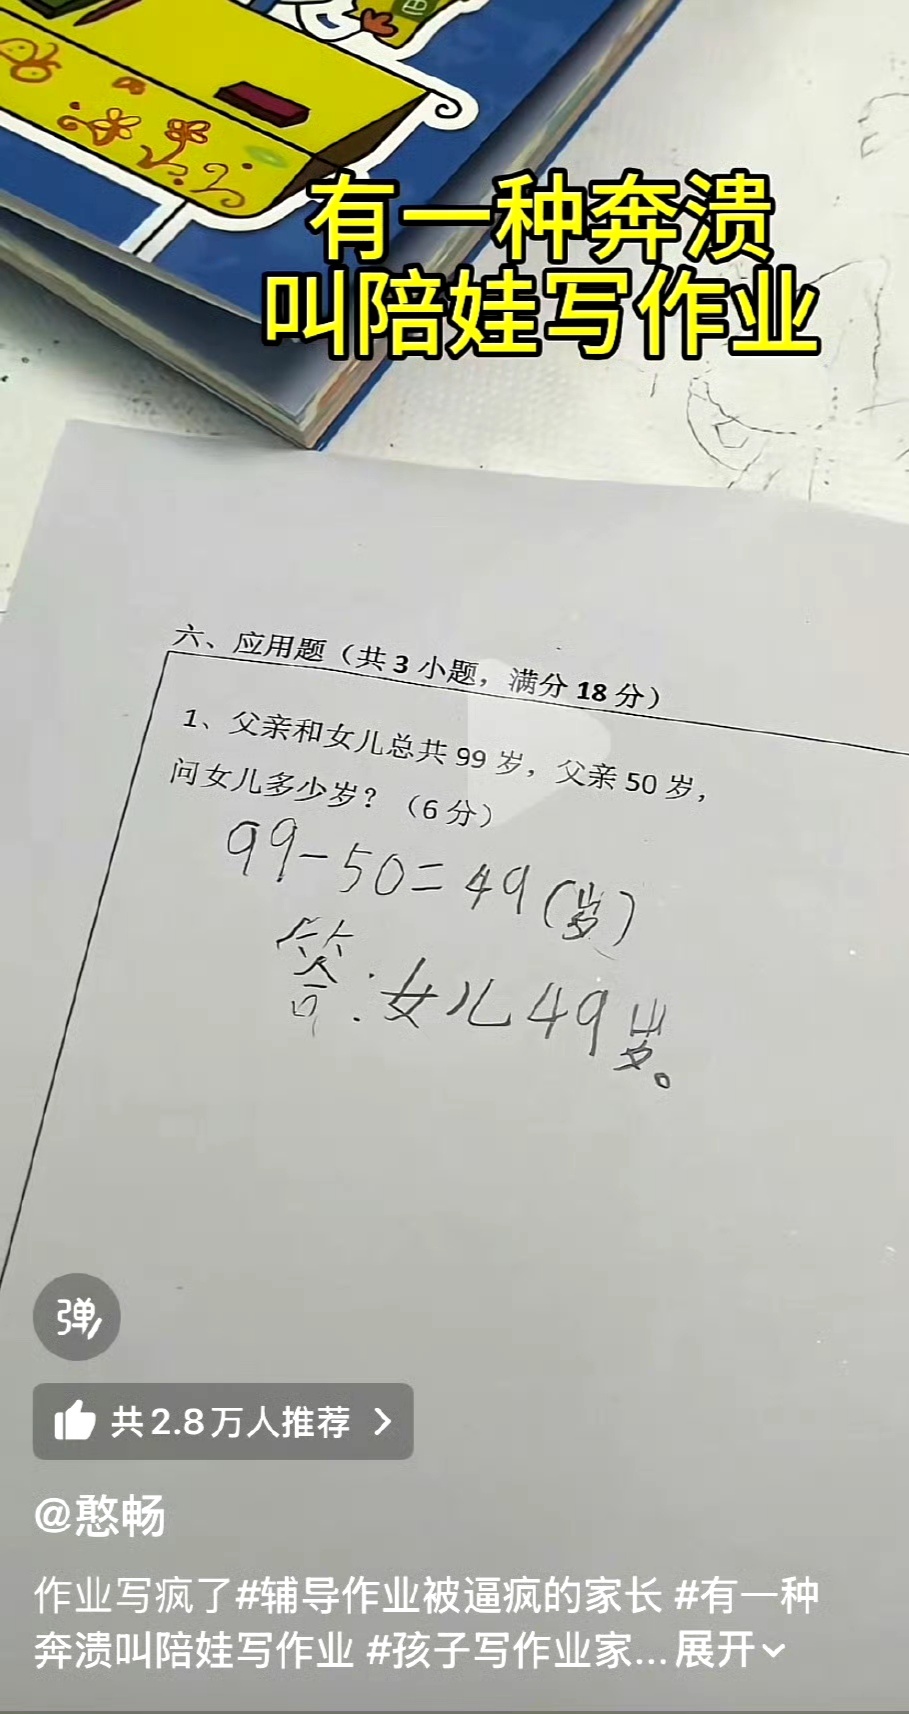 有一种奔溃
叫陪娃写作业
六、应用题（共3小题，满分18分）
1、父亲和女儿总共99岁，父亲50岁，
问女儿多少岁？（6分）
99-50=49(岁)
答:女儿49岁。
弹
共2.8万人推荐 >
@憨畅
作业写疯了#辅导作业被逼疯的家长 #有一种
奔溃叫陪娃写作业 #孩子写作业家... 展开